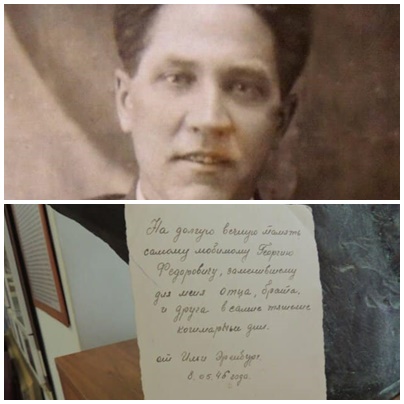 На долгую вечную память
самому любимому Георгию
Федоровичу, заменившему
для меня отца, брата
и друга в самые тяжелые
кошмарные дни.
от Ильи Эренбург.
8.05.45 года.